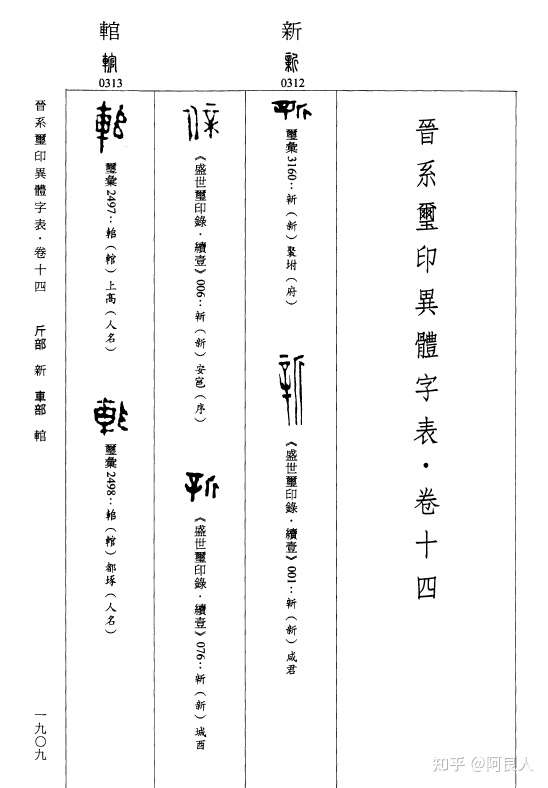 晉系璽印異體字表·卷十四
新
0312
璽彙3160：新（新）聚坿（府）
《盛世璽印錄·續壹》001：新（新）咸君
《盛世璽印錄·續壹》006：新（新）安邑（序）
《盛世璽印錄·續壹》076：新（新）城酉
輨
0313
璽彙2497：輨（輨）上高（人名）
璽彙2498：輨（輨）都㧻（人名）
晉系璽印異體字表·卷十四 斤部 新 車部 輨
一九〇九
知乎 @阿良人